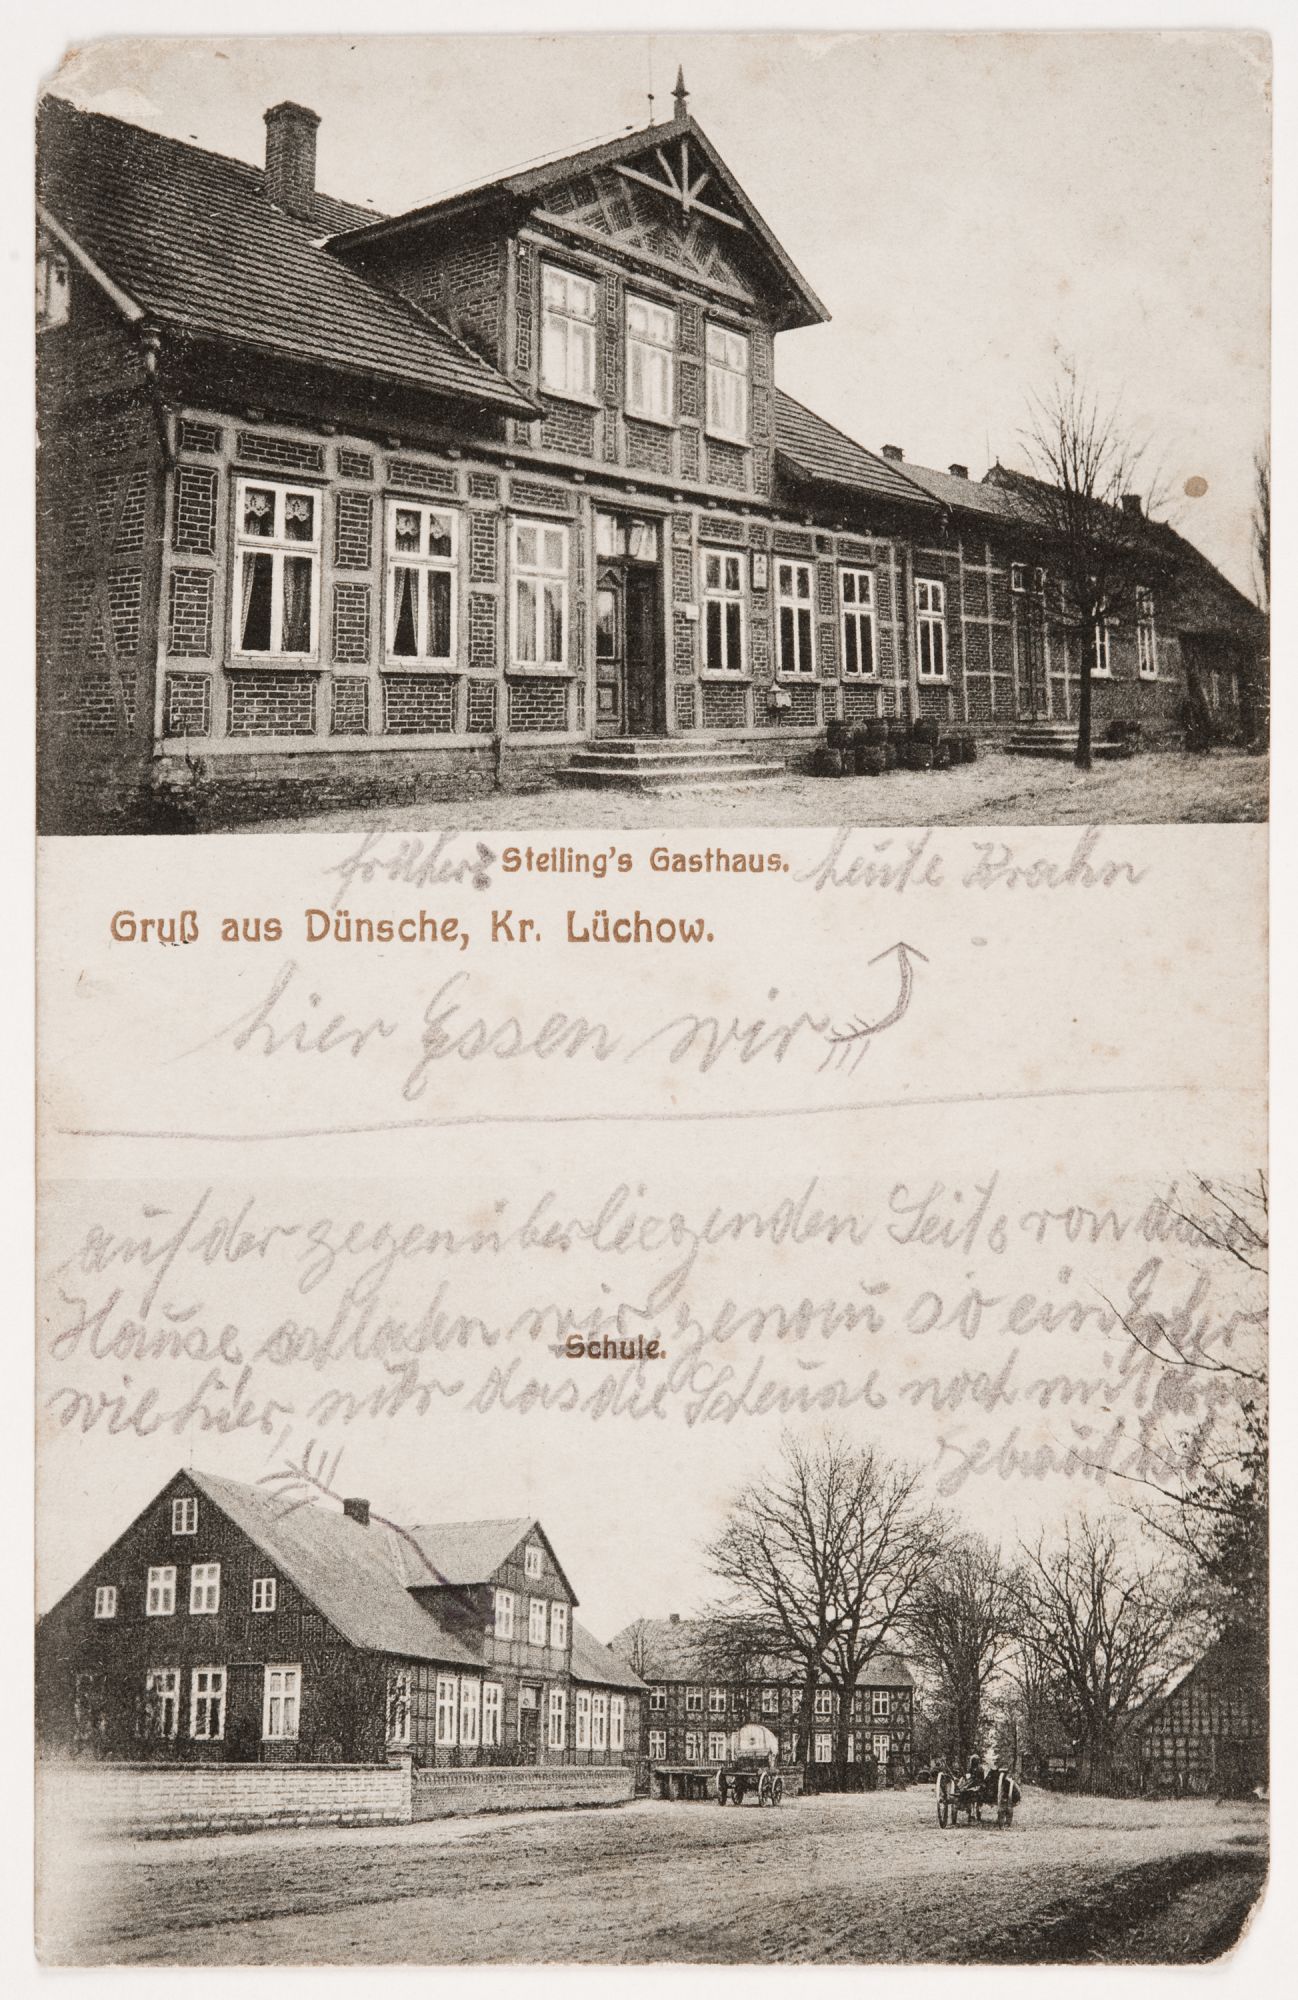 früher Steiling's Gasthaus. heute Krahn
Gruß aus Dünsche, Kr. Lüchow.
hier Essen wir
auf der gegenüberliegenden Seite von diesen
Hause schlafen wir genau so ein
Schule.
wie hier, nur das die Scheune noch mit
gebaut ist